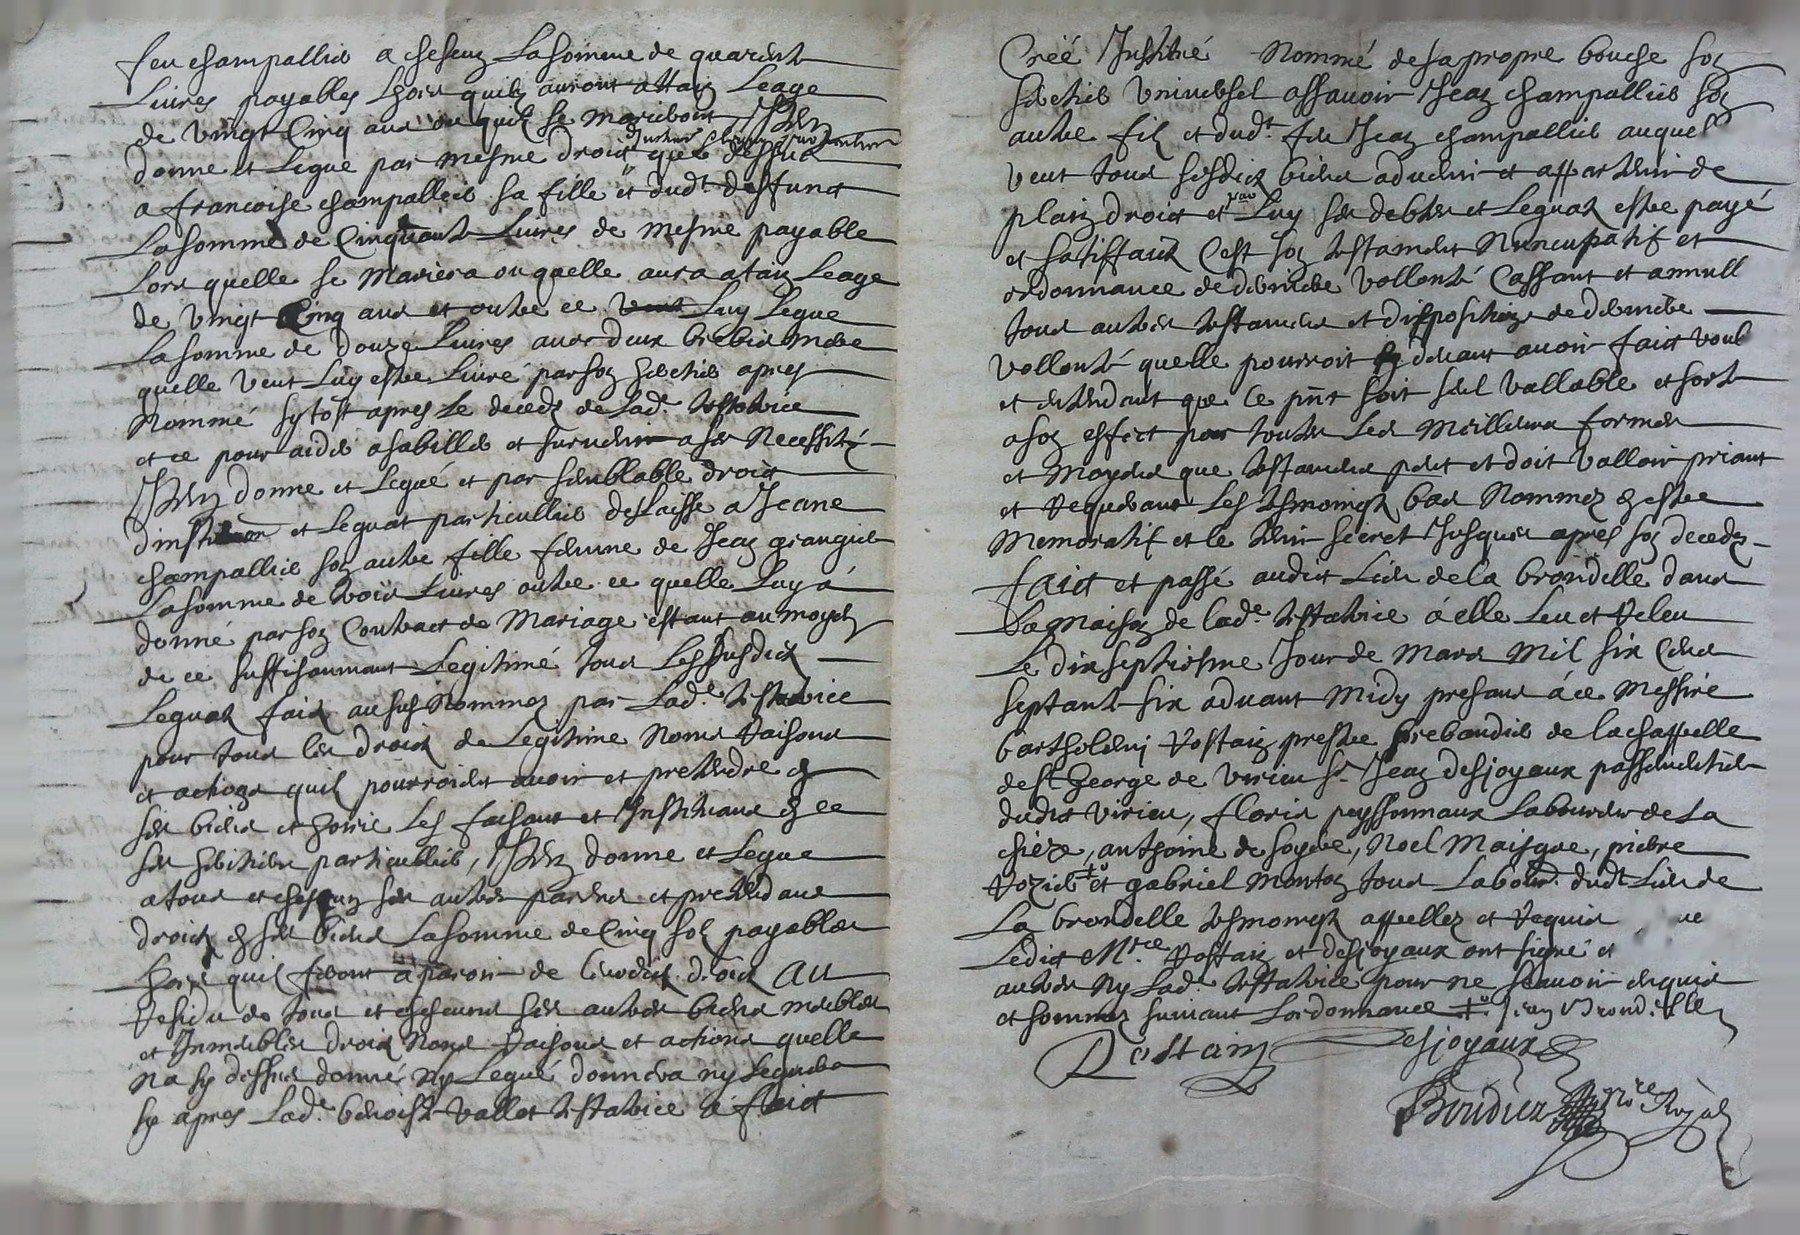 feu champallier a chescung la somme de quarente
Livres payables lhors quilz auront attaing Leage
de vingt Cinq ans ou quilz se marieront, Item
donne et Legue par mesme droict que dessus
a francoise champallier sa fille et dudt deffunct
La somme de Cinquante Livres de mesme payable
Lors quelle se Mariera ou quelle aura ataing Leage
de vingt Cinq ans et outre ce Luy Legue
La somme de douze Livres avec deux brebis mere
quelle veut Luy estre Livré par son heretier apres
Nommé sytost apres Le decedz de Lade testatrice
et ce pour aider a sabiller et survenir a ses Necessité
Item donne et Legué et par semblable droict
dinstitution et Leguat particullier delaisse a Jeane
champallier son autre fille femme de Jean grangier
La somme de trois Livres outre ce quelle Luy a
donné par son Contract de Mariage estant au moyen
de ce suffisamment Legitimé tous Les susdictz
Leguatz faictz aussus Nommez par Lade testatrice
pour tous les droictz de Legitime Noms Raisons
et actions quilz pourroient avoir et pretendre en
ses biens et hoirie Les faisant et Instituant en ce
ses heritiers particulliers, Item donne et Legue
a tous et chescung ses autres parens et pretendans
droictz en ses biens La somme de Cinq solz payables
Lhors quilz feront aparoir de leurdictz droictz Au
Residu de tous et chescuns ses autres biens meubles
et Immeubles droictz Noms Raisons et actions quelle
Na sy dessus donné Ny Legué donnera ny Leguera
sy apres Lade benoiste vallet testatrice a faict
Créé Institué Nommé de sa propre bouche son
heretier universel assavoir Jean champallier son
autre filz et dudt feu Jean champallier auquel
veut tous sesdictz biens advenir et appartenir de
plain droict et par Luy ses debtes et Leguatz estre payé
et satiffaictz Cest son testament Nuncupatif et
ordonnance de derniere vollonté Cassant et annull
tous autres testamens et dispositions de derniere
vollonté quelle pourroit sy devant avoir faict voul
et entendant que ce pnt soit seul vallable et sorte
a son effect par toutes Les Meilleures formes
et Moyens que testamens peut et doit valloir priant
et Requerant Les tesmoingtz bas Nommez en estre
Memoratif et le tenir secret Jusques apres son decedz
faict et passé audict Lieu de la brondelle dans
La Maison de lade testatrice á elle Leu et Releu
Le dix septiesme Jour de Mars Mil six Cens
septante six advant Midy presans á ce Messire
bartholemj Rostaing prestre prebandier de la chappelle
de st George de virieu sr Jean desjoyaux passementier
dudict virieu, floris peyssonnaux Laboureur de La
chieze, anthoine de soyere, Noel Maisgre, pierre
Rozier et gabriel Monton tous Labour. dudt Lieu de
La brondelle tesmoingtz appellez et Requis
Ledict Mre Rostaing et desjoyaux ont signé et
autres Ny Lade testatrice pour ne scavoir enquis
et sommez suivant Lordonnance
Rostaing Desjoyaux
Bourdier Nore Royal